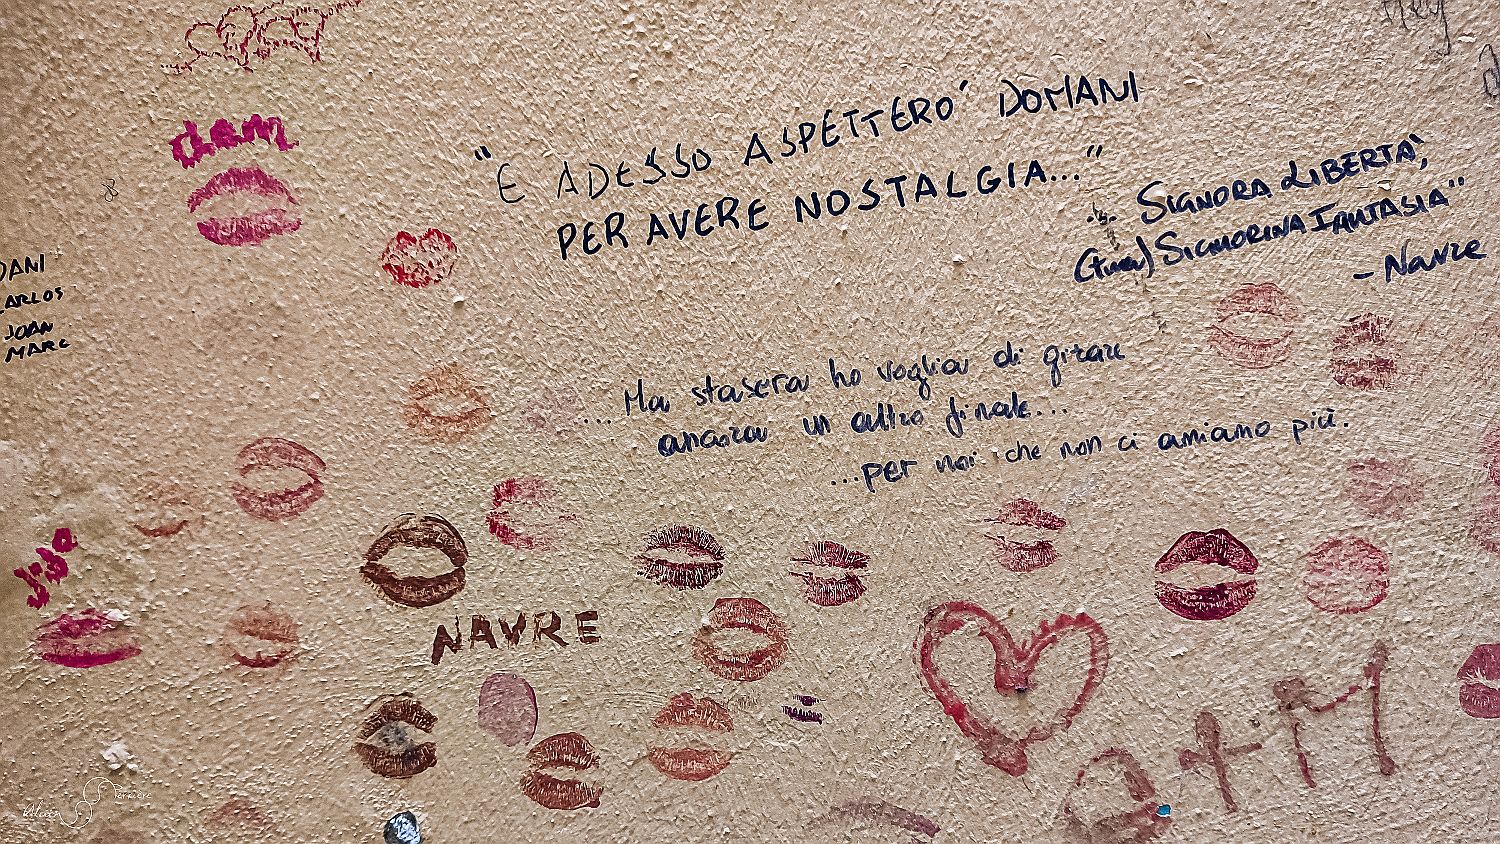 "E ADESSO ASPETTERO' DOMANI
PER AVERE NOSTALGIA..."
SIGNORA LIBERTÀ,
SIGNORINA FANTASIA"
- Navre
DANI
CARLOS
JOAN
MARC
...Ma stasera ho voglia di girare
ancora un altro finale...
...per noi che non ci amiamo più.
NAVRE
+M